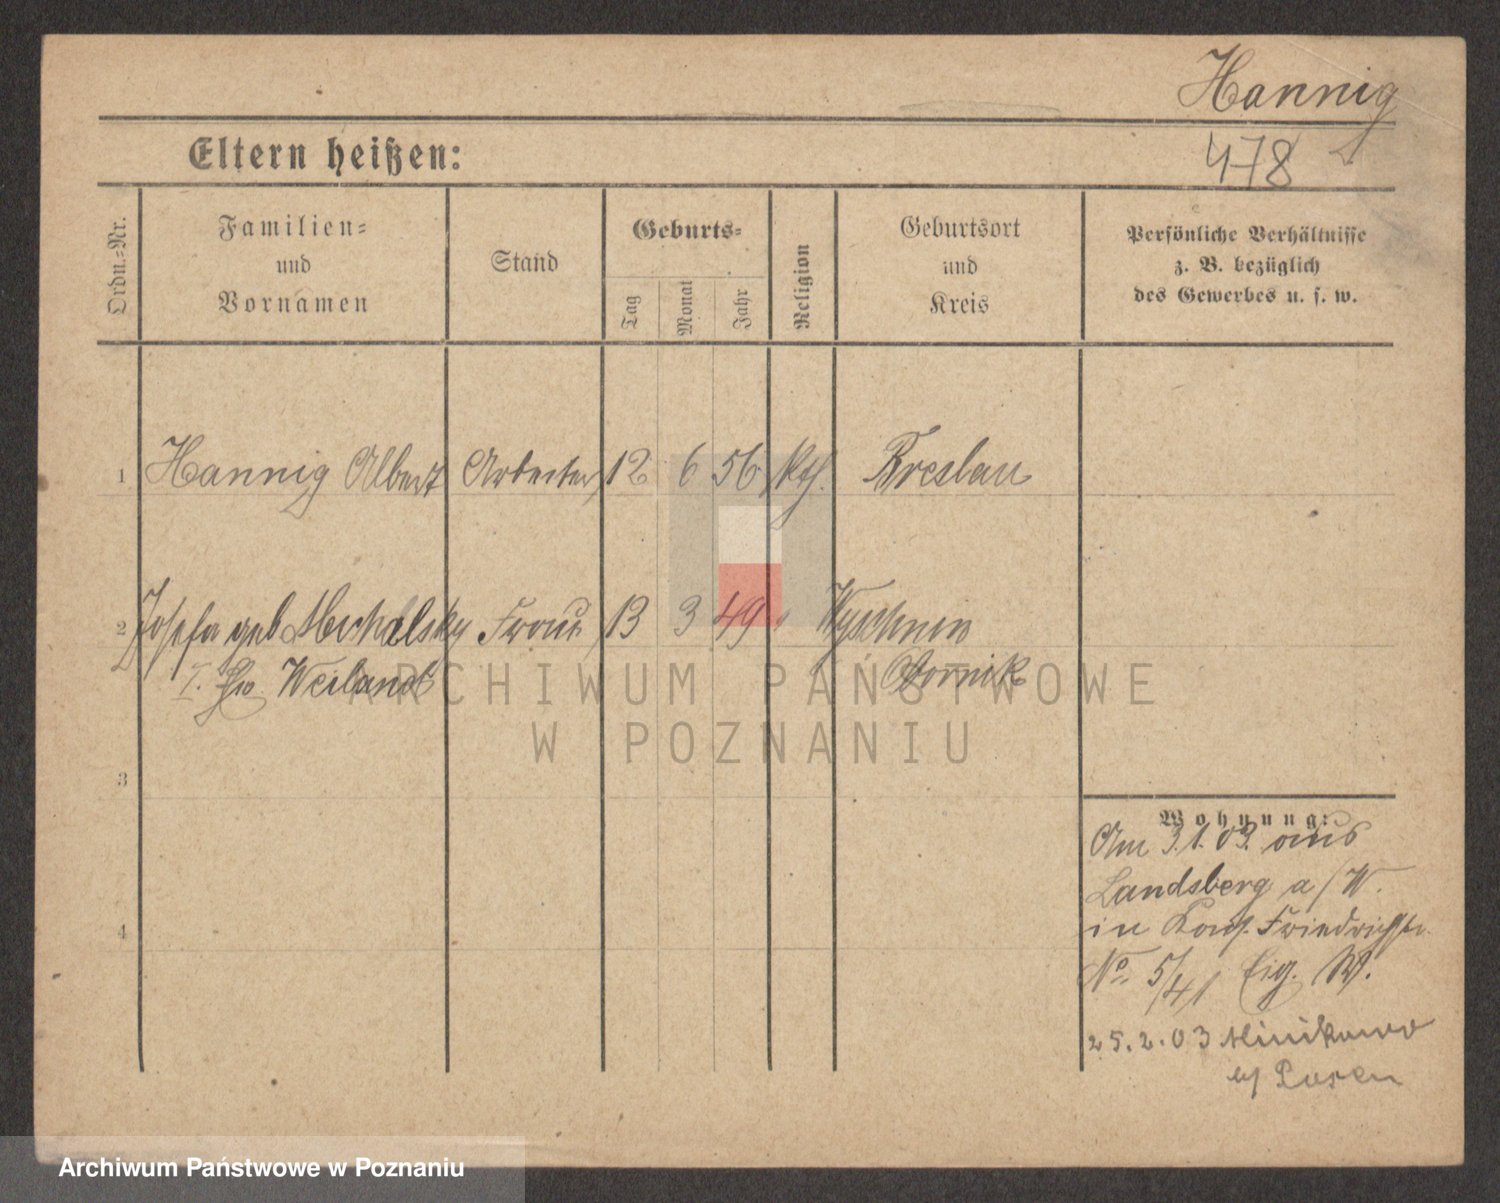 Hannig
478
Eltern heißen:
Ordn.=Nr.
Familien=
und
Vornamen
Stand
Geburts=
Tag
Monat
Jahr
Religion
Geburtsort
und
Kreis
Persönliche Verhältnisse
z. B. bezüglich
des Gewerbes u. s. w.
1 Hannig Albert Arbeiter 12 6 56 kth. Breslau
2 Josefa geb Michalsky Frau 13 3 49 "
I. Weiland
3
4
Wohnung:
Am 3.1.03. aus
Landsberg a/W.
in Friedrichstr.
No 5/41 Eig. W.
25.2.03 Minikowo
b/ Posen
ARCHIWUM PAŃSTWOWE
W POZNANIU
Archiwum Państwowe w Poznaniu